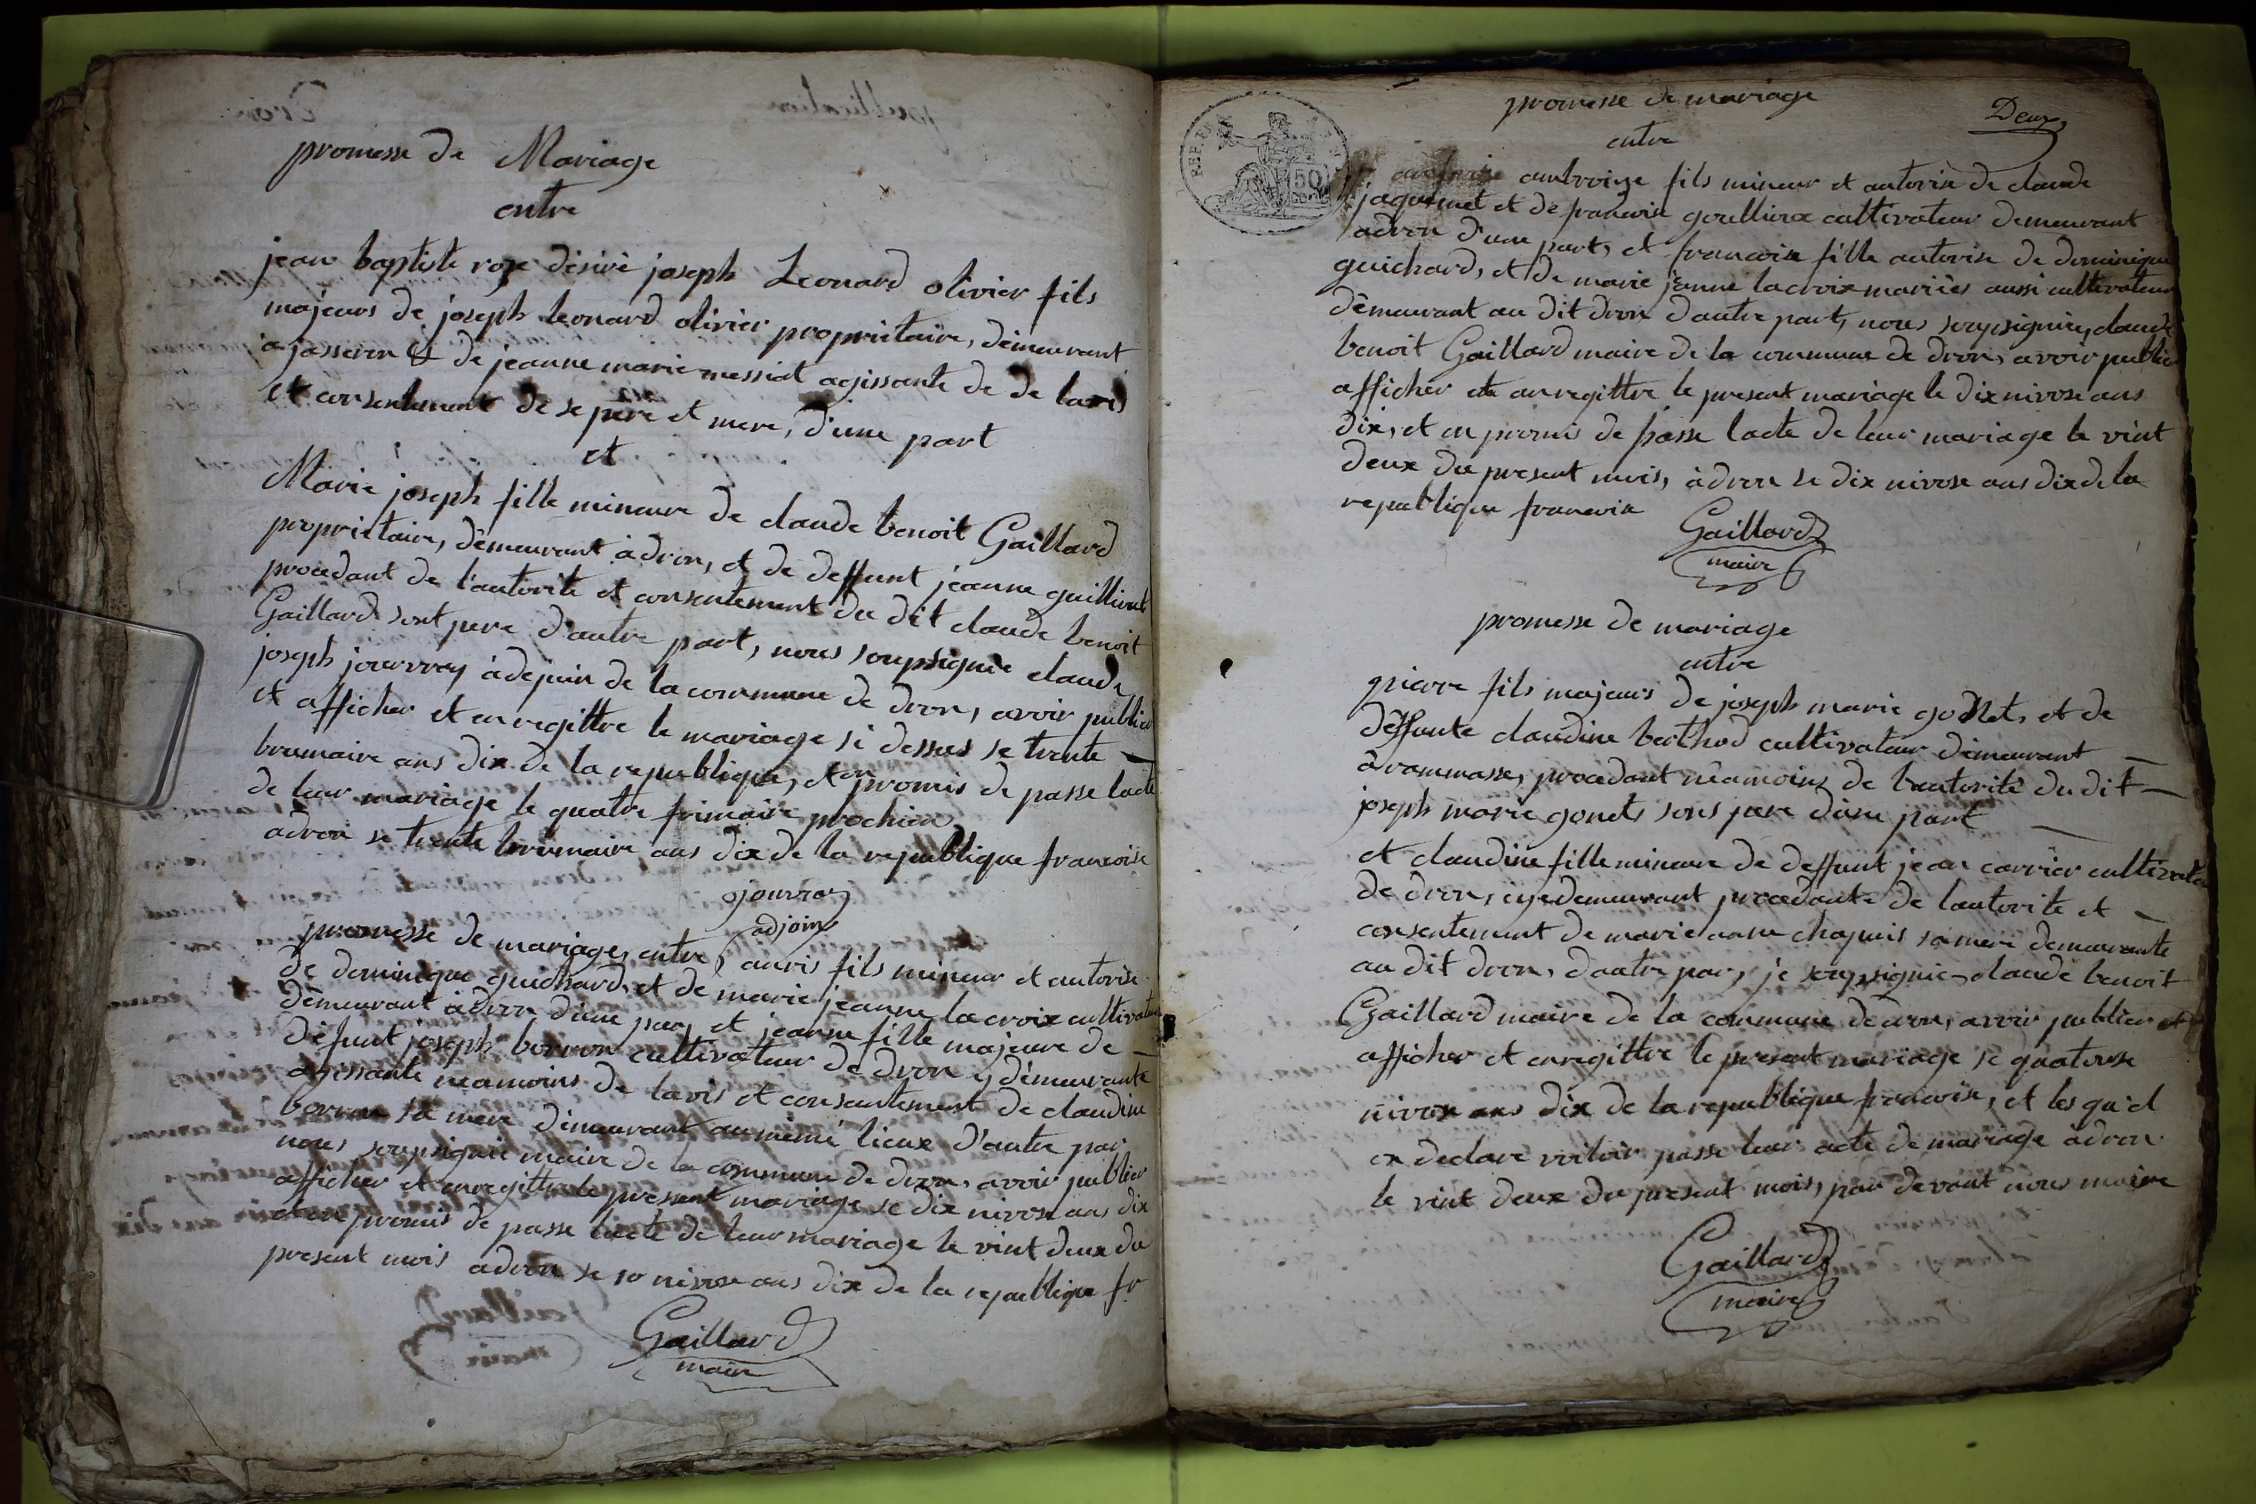 promesse de Mariage
entre
jean baptiste roze désiré joseph Leonard olivier fils
majeurs de joseph leonard olivier propriétaire, démeurant
a jasseron & de jeanne marie messiat agissante de de lavis
et consentement de se père et mere, d'une part
et
Marie joseph fille mineure de claude benoit Gaillard
propriétaire, démeurant à dron, et de deffunt jeanne
procedant de l'autorité et consentement du dit claude benoit
Gaillard sont pere d'autre part, nous soupsignié claude
joseph jourvrey àdejoin de la commune de dron, avoir publier
et afficher et enregittre le mariage si dessus se trente
brumaire ans dix de la republique, et on promis de passe lacte
de leur mariage le quatre frimaire prochien
adron se trente brumaire ans dix de la republique francoise
adjoin
promesse de mariage, entre, anvis fils mineur et autorise
de dominique guichard, et de marie jeanne lacroix cultivateur
démeurant à dron d'une par, et jeanne fille majeure de
défunt joseph borron cultivateur de dron y démeurante
agissante néamoins de lavis et consentement de claudine
borron sa mere démeurant au même lieux d'autre par
nous soupsignié maire de la commune de dron, avoir publier
afficher et enregittre le present mariage se dix nivose ans dix
et on promis de passe lacte de leur mariage le vint deux du
present mois adron se 10 nivose ans dix de la republique fr
Gaillard
maire
Deux
promesse de mariage
entre
ambroize fils mineur et autorisé de claude
jaquemet et de francoise goullieux cultivateur demeurant
adron d'une part, et francoise fille autorise de dominique
guichard, et de marie jeanne lacroix mariés aussi cultivateur
démeurant au dit dron d'autre part, nous soupsignié, claude
benoit Gaillard maire de la commune de dron, avoir publier
afficher et enregittre le present mariage le dix nivose ans
dix, et on promis de passe lacte de leur mariage le vint
deux du present mois, à dron se dix nivose ans dix de la
republique francoise
Gaillard
maire
promesse de mariage
entre
pierre fils majeurs de joseph marie godet, et de
deffunte claudine berthod cultivateur démeurant
à rammasse, procedant néamoins de lautorité du dit
joseph marie gonet, sons pere d'une part
et claudine fille mineure de deffunt jean carrier cultivateur
de dron, y demeurant procedante de lautorite et
consentement de marie anne chapuis sa mere demeurante
au dit dron, dautre par, je soupsignié claude benoit
Gaillard maire de la commune de dron, avoir publier et
afficher et enregittre le present mariage se quatorse
nivose ans dix de la republique francoise, et les quel
on declaré voiloir passe leur acte de mariage à dron
le vint deux du present mois, par devant nous maire
Gaillard
maire